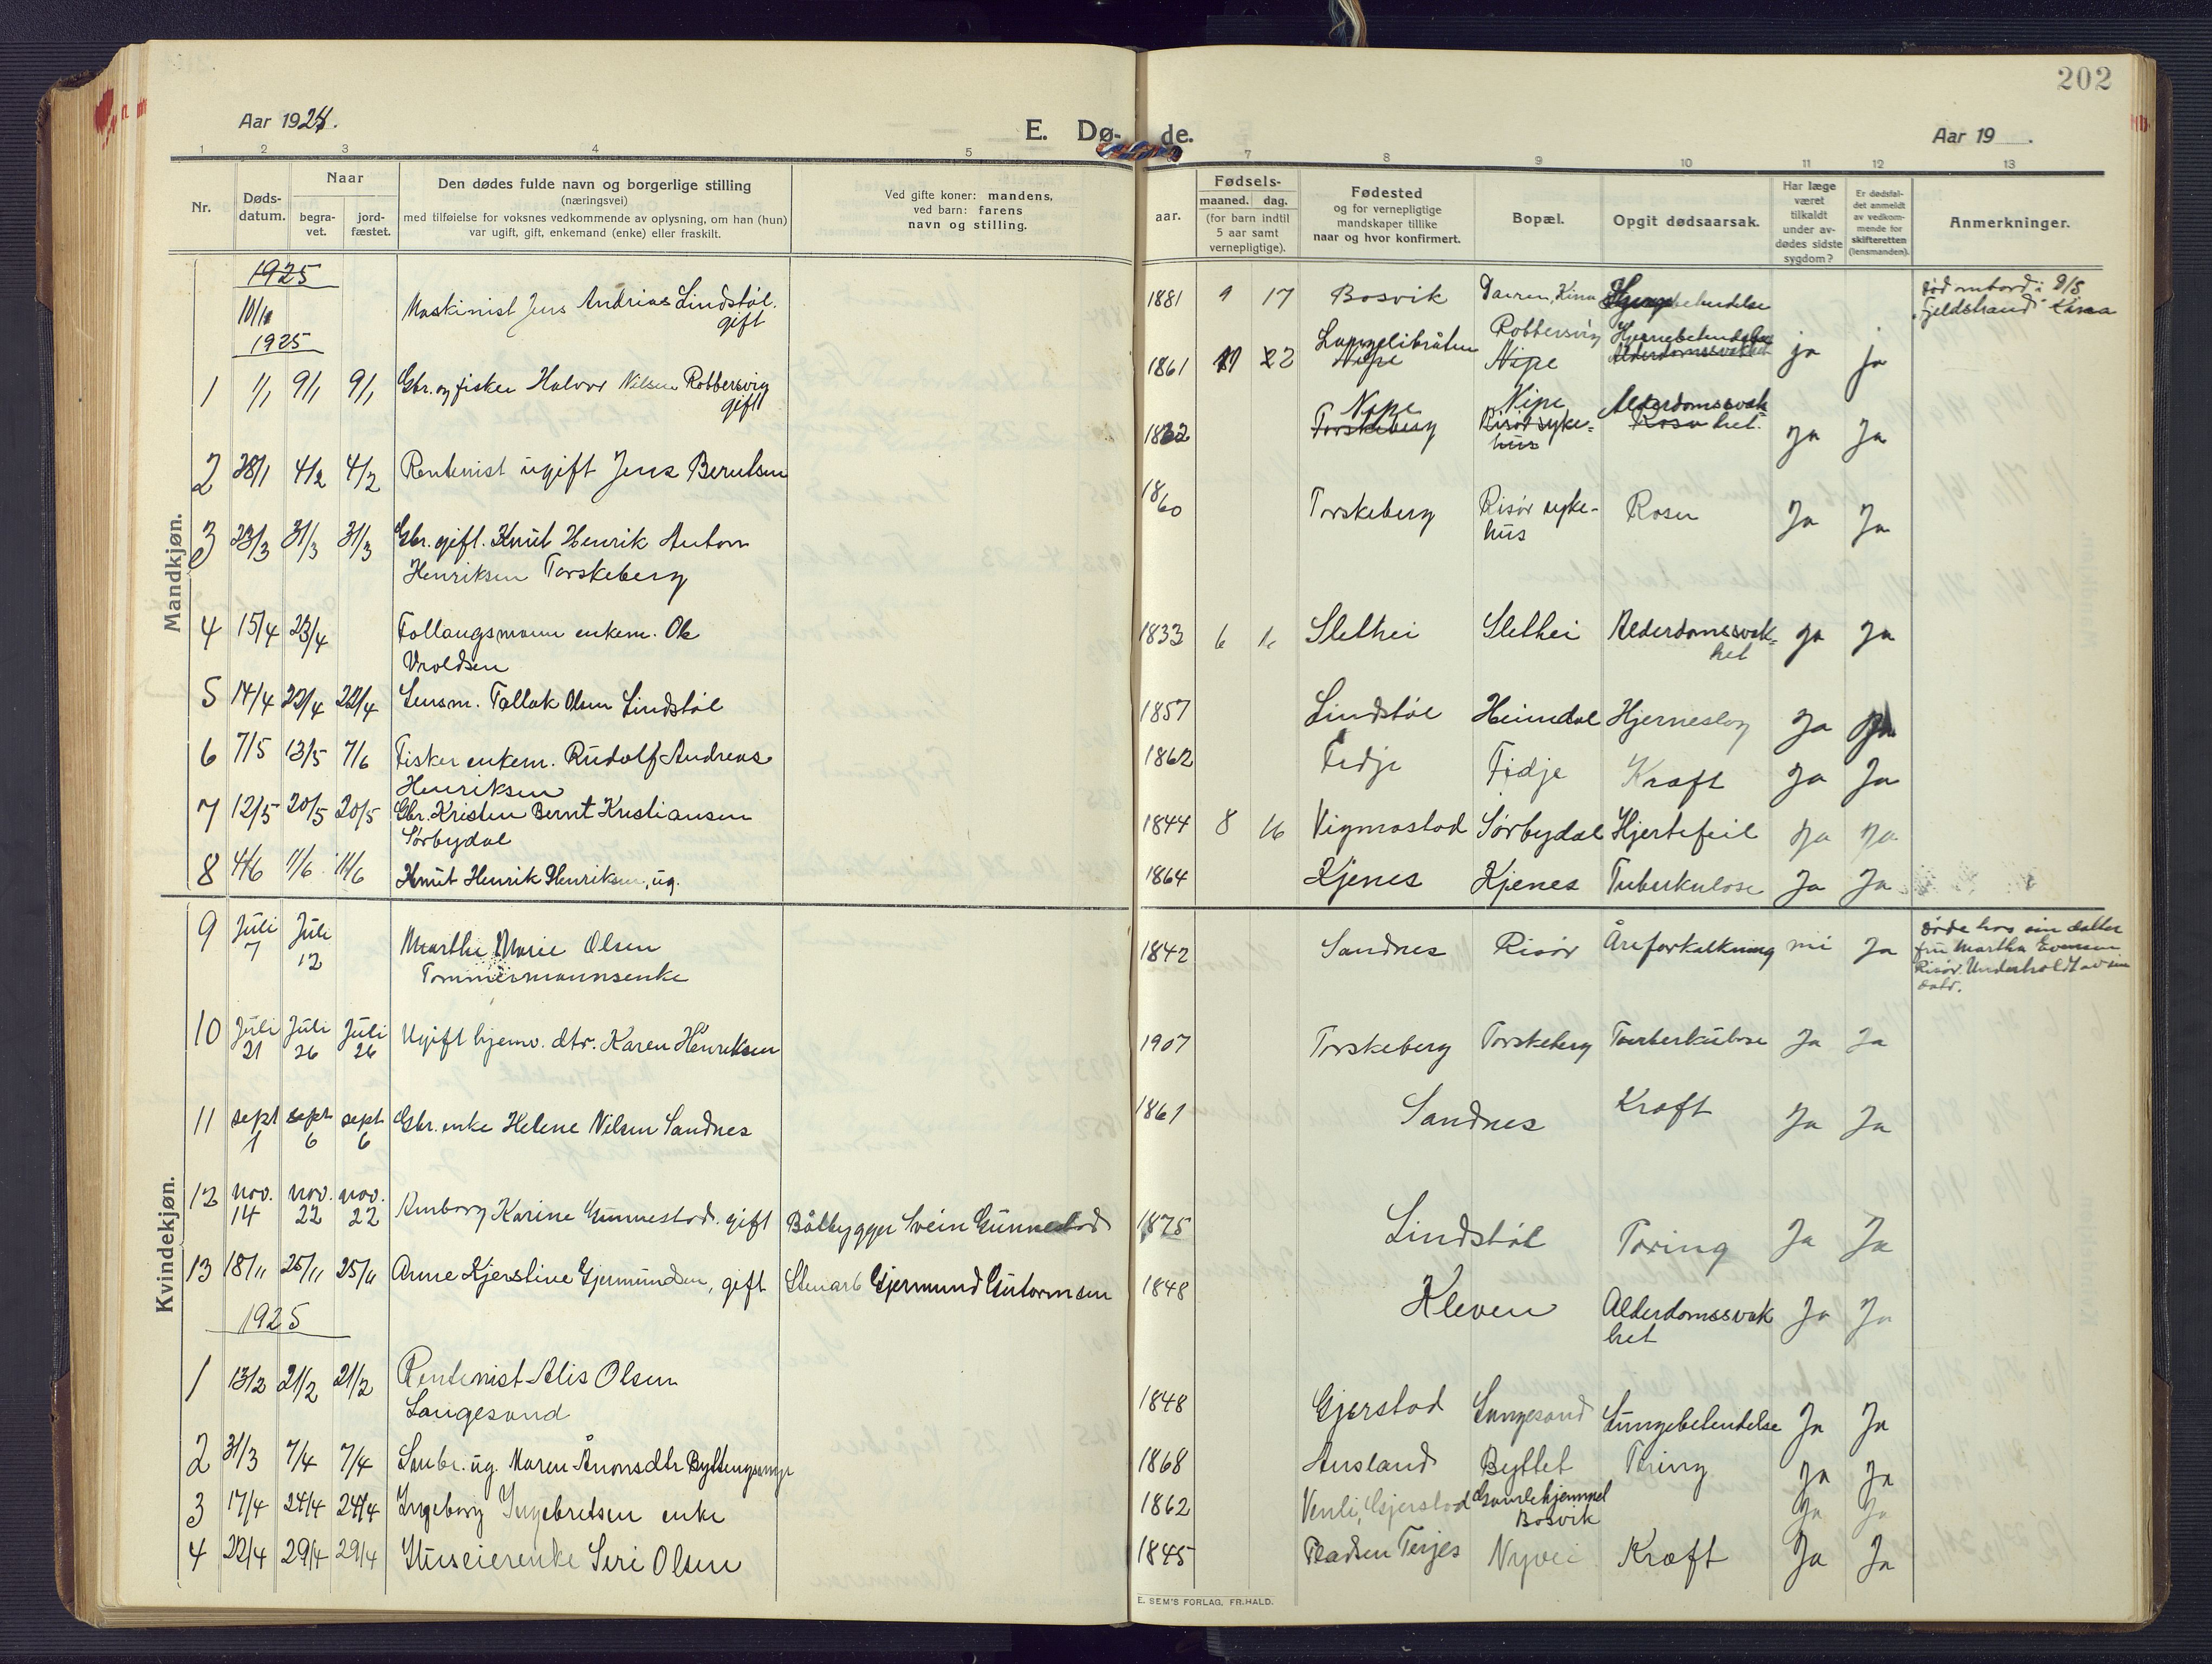 202
Aar 1924.
E. Dø-
de.
Aar 19 .
1 2 3 4 5 7 8 9 10 11 12 13
Nr.
Døds-
datum.
Naar
begra-
vet.
jord-
fæstet.
Den dødes fulde navn og borgerlige stilling
(næringsvei)
med tilføielse for voksnes vedkommende av oplysning, om han (hun)
var ugift, gift, enkemand (enke) eller fraskilt.
Ved gifte koner: mandens,
ved barn: farens
navn og stilling.
Fødsels-
aar.
maaned. dag.
(for barn indtil
5 aar samt
vernepligtige).
Fødested
og for vernepligtige
mandskaper tillike
naar og hvor konfirmert.
Bopæl.
Opgit dødsaarsak.
Har læge
været
tilkaldt
under av-
dødes sidste
sygdom?
Er dødsfal-
det anmeldt
av vedkom-
mende for
skifteretten
(lensmanden).
Anmerkninger.
Mandkjøn.
1925
Maskinist Jens Andrias Lindstøl.
gift
1881 9 17 Bosvik Kina
Død ombord i D/S
"Fjeldstrand" Kina
1925
1 1/1 9/1 9/1 Gbr. og fisker Halvor Nilsen Røbbersvig
gift
1861 22 Nipe Nipe Hjernebetendelse Alderdomssvakhet ja ja
2 28/1 4/2 4/2 Rentenist ugift Jens Berntsen
Nipe Nipe Alderdomssvak-
Torskeberg Risør syke-
hus
Rosen het. Ja Ja
3 23/3 31/3 31/3 Gbr. gift. Knut Henrik Anton
Henriksen Torskeberg
1860 Torskeberg Risør syke-
hus
Rosen Ja Ja
4 15/4 23/4 Follaugsmann enkem. Ole
Vroldsen
1833 6 Slethei Slethei Alderdomssvak-
het
Ja Ja
5 14/4 22/4 22/4 Lensm. Tallak Olsen Lindstøl
1857 Lindstøl Heimdal Hjerneslag Ja Ja
6 7/5 13/5 7/6 Fisker enkem. Rudolf Andreas
Henriksen
1862 Fidje Fidje Kræft Ja Ja
7 12/5 20/5 20/5 Gbr. Kristen Bernt Kristiansen
Sørbydal
1844 8 16 Vigmostad Sørbydal Hjertefeil Ja Ja
8 4/6 11/6 11/6 Knut Henrik Henriksen, ug.
1864 Kjenes Kjenes Tuberkulose Ja Ja
Kvindekjøn.
9 Juli
7
Juli
12
Marthe Marie Olsen
Tømmermannsenke
1842 Sandnes Risør Åreforkalkning nei Ja
Døde hos sin datter
fru Martha Evensen
Risør. Underholdt av sin
datr.
10 Juli
21
Juli
26
Juli
26
Ugift hjemv. dtr. Karen Henriksen
1907 Torskeberg Torskeberg Tuberkulose Ja Ja
11 sept
1
sept
6
sept
6
Gbr. enke Helene Nilsen Sandnes
1861 Sandnes Kræft Ja Ja
12 nov.
14
nov.
22
nov.
22
Amborg Karine Gunnestad. gift Båtbygger Svein Gunnestad
1875 Lindstøl Tæring Ja Ja
13 18/11 25/11 25/11 Anne Kjerstine Gjermundsen, gift Stenarb Gjermund Gutormsen
1848 Kleven Alderdomssvak
het
Ja Ja
1925
1 13/2 21/2 21/2 Rentenist Alis Olsen
Langesand
1848 Gjerstad Langesand Lungebetendelse Ja Ja
2 31/3 7/4 7/4 ug. Maren Ånonsdtr
1868 Ausland Byttet Tæring Ja Ja
3 17/4 24/4 24/4 Ingeborg Ingebretsen enke
1862 Venli, Gjerstad Gamlehjemmet
Bosvik
Ja Ja
4 22/4 29/4 29/4 Huseierenke Seri Olsen
1845 Terjes Nyvei Kræft Ja Ja
E. SEM'S FORLAG, FR.HALD.